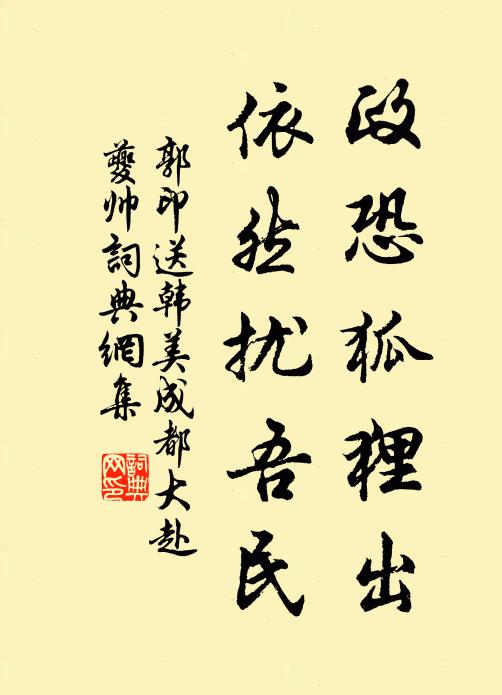 政恐狐狸出
依然扰吾民
郭印送韩美成都大赴
夔帅詞典網集
詞典网印